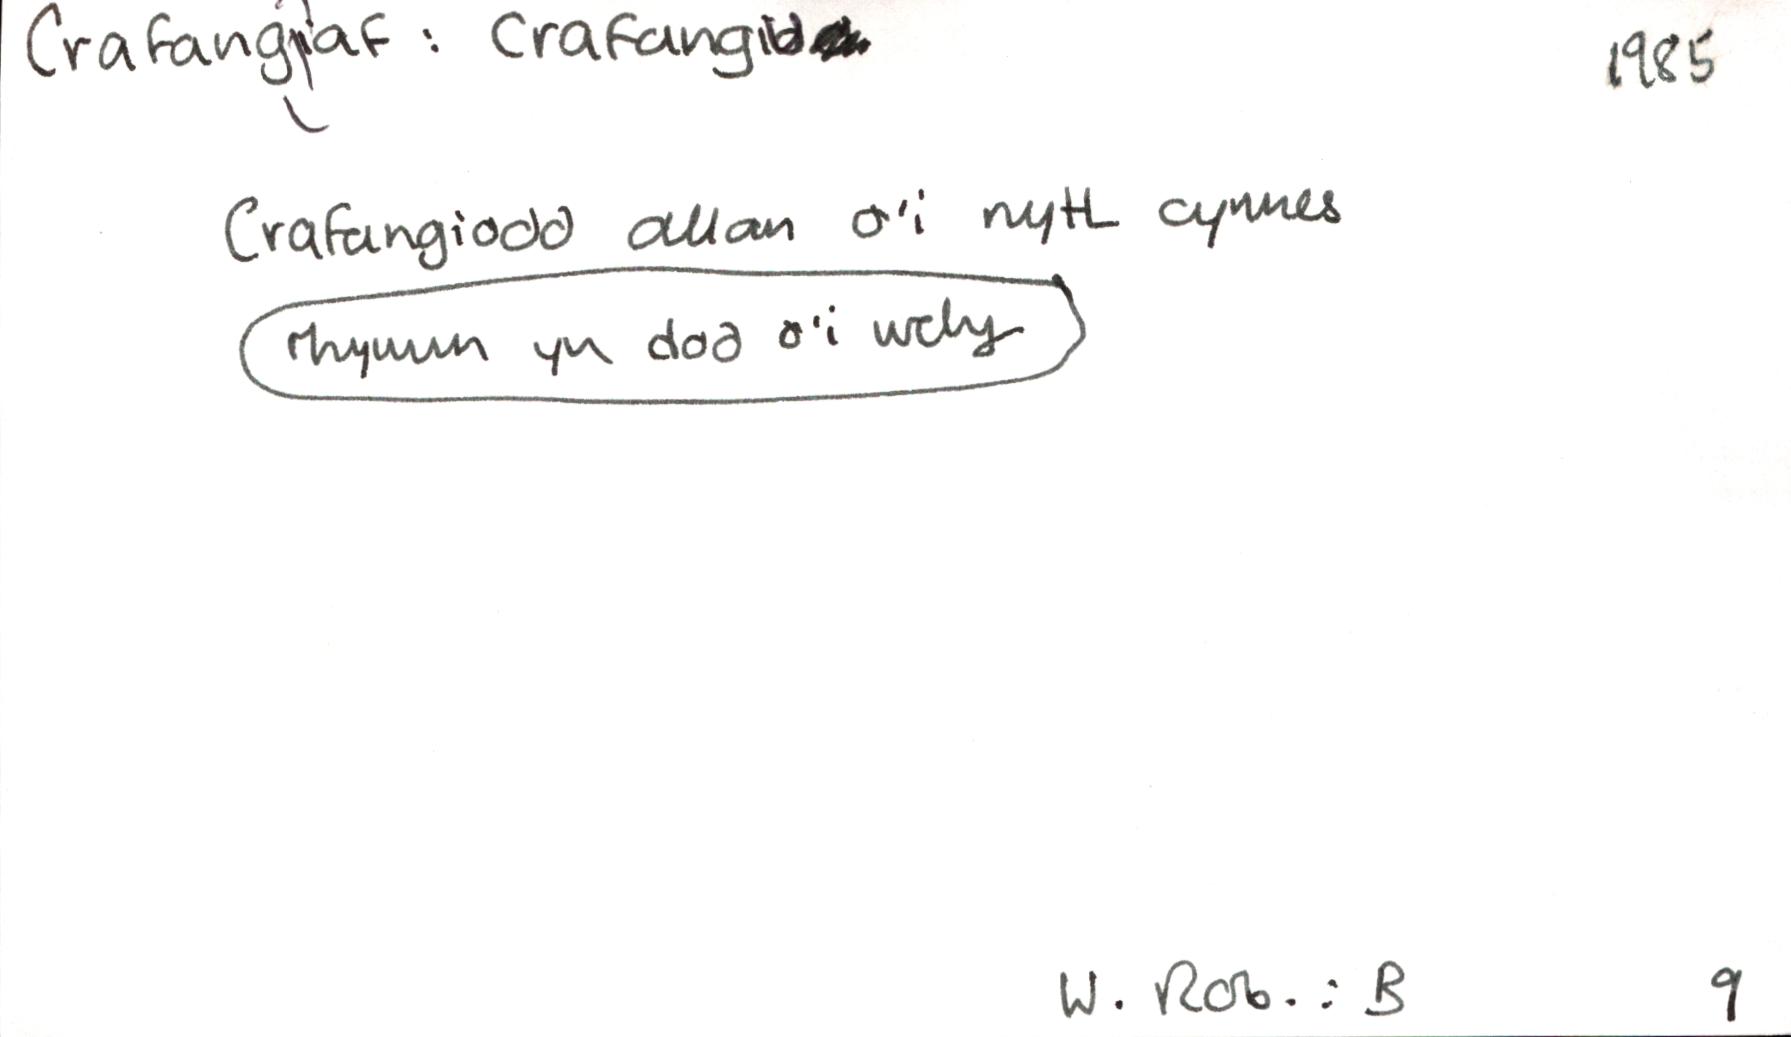 Crafangiaf : Crafangio 1985
Crafangiodd allan o'i nyth cynnes
rhywun yn dod o'i wely
W. Rob. : B 9